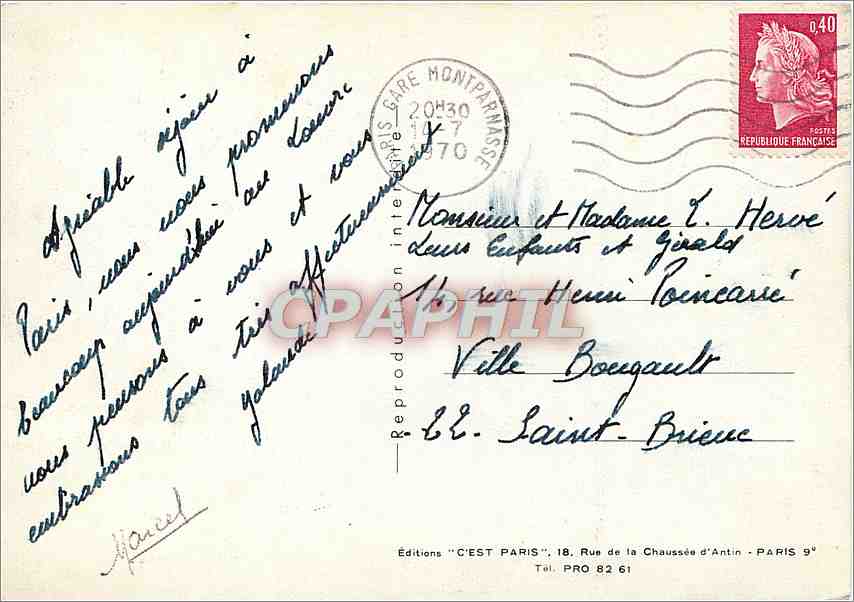 Agréable séjour à
Paris, nous nous promenons
beaucoup aujourd'hui au Louvre
nous pensons à vous et vous
embrassons tous très affectueusement
Yolande
Marcel
Reproduction interdite
PARIS GARE MONTPARNASSE
20H30
14-7
1970
0,40
POSTES
REPUBLIQUE FRANÇAISE
Monsieur et Madame L. Hervé
Leurs Enfants et Gérald
14, rue Henri Poincarré
Ville Bougault
22. Saint-Brieuc
CPAPHIL
Éditions "C'EST PARIS", 18, Rue de la Chaussée d'Antin - PARIS 9e
Tél. PRO 82 61